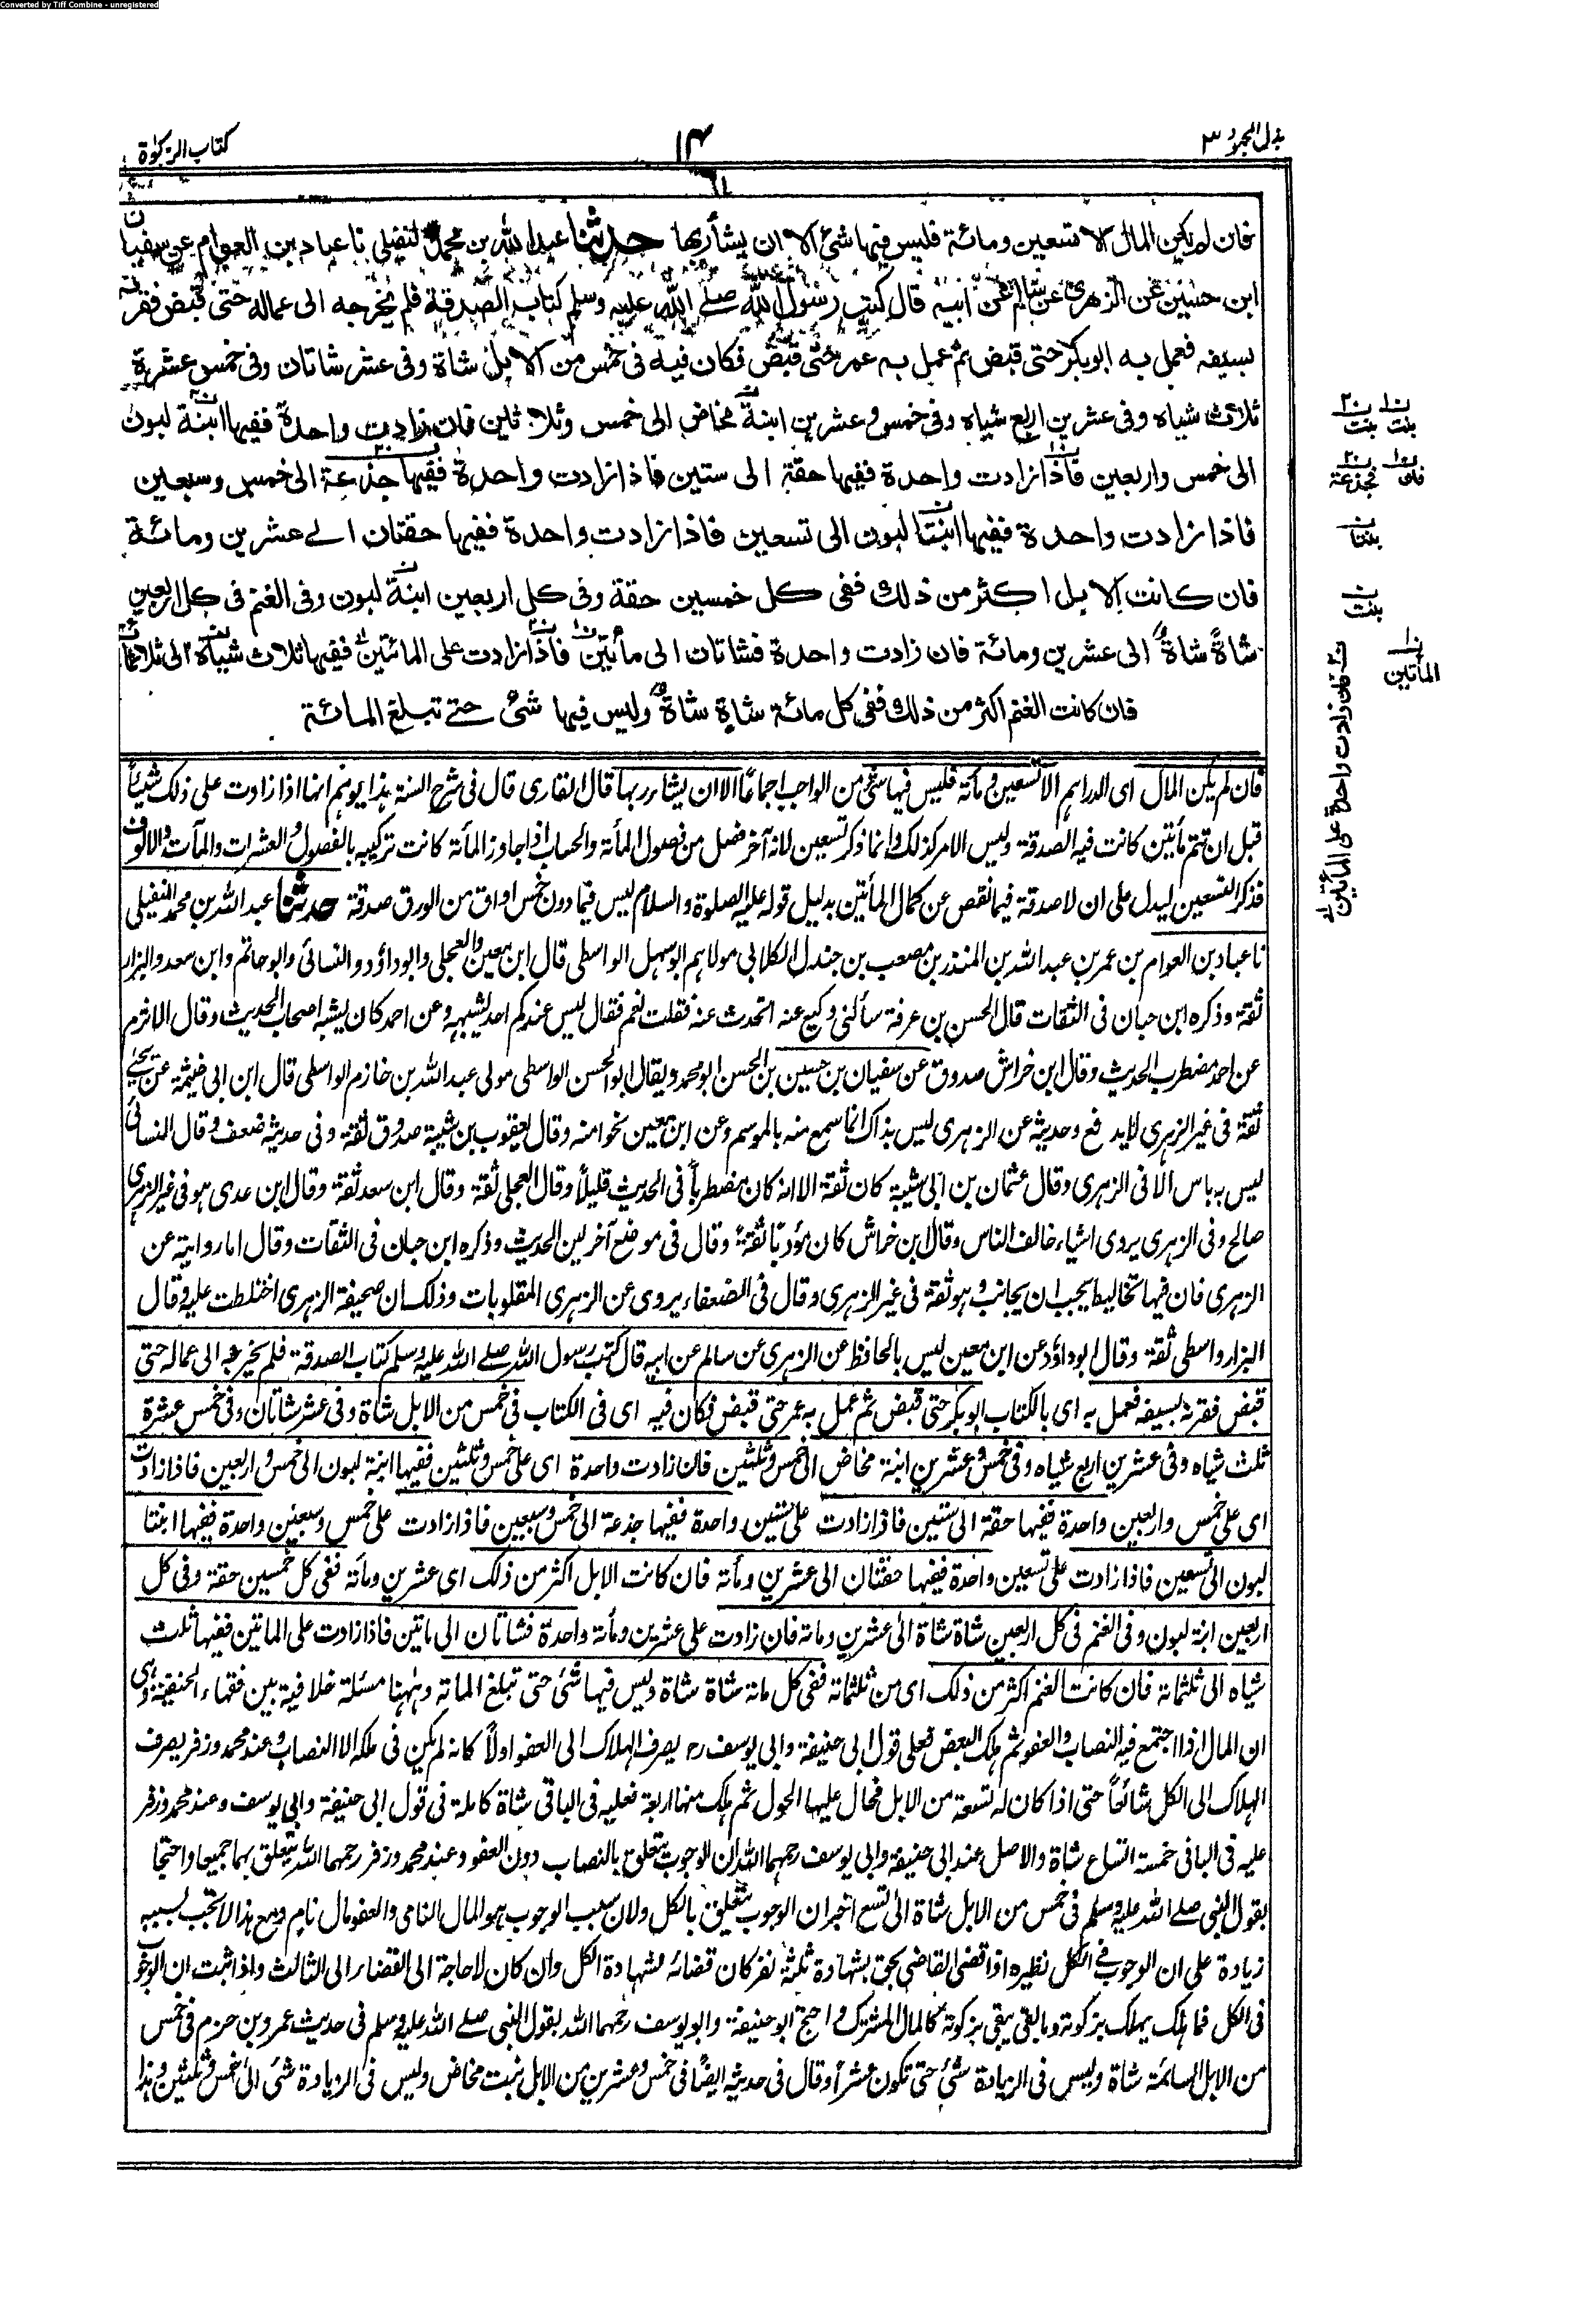 Converted by Tiff Combine - unregistered
بذل المجهود ٣
١٤
كتاب الزكوٰة
فان لم يكن المال الا تسعين ومائة فليس فيها شئ الا ان يشأ ربها حدثنا عبد الله بن محمد النفيلي نا عباد بن العوام عن سفيان
ابن حسين عن الزهرى عن سالم عن ابيه قال كتب رسول الله صلے الله عليه وسلم كتاب الصدقة فلم يخرجه الى عماله حتى قبض فقرنه
بسيفه فعمل به ابوبكر حتى قبض ثم عمل به عمر حتى قبض فكان فيه فى خمس من الابل شاة وفى عشر شاتان وفى خمس عشرة
ثلاث شياه وفى عشرين اربع شياه وفى خمس وعشرين ابنة مخاض الى خمس وثلاثين فان زادت واحدة ففيها ابنة لبون
الى خمس واربعين فاذا زادت واحدة ففيها حقة الى ستين فاذا زادت واحدة ففيها جذعة الى خمس وسبعين
فاذا زادت واحدة ففيها ابنتا لبون الى تسعين فاذا زادت واحدة ففيها حقتان الے عشرين ومائة
فان كانت الابل اكثر من ذلك ففى كل خمسين حقة وفى كل اربعين ابنة لبون وفى الغنم فى كل اربعين
شاةً شاةٌ الى عشرين ومائة فان زادت واحدة فشاتان الى مأتين فاذا زادت على المائتين ففيها ثلاث شياه الى ثلاثمائة
فان كانت الغنم اكثر من ذلك ففى كل مائة شاةٍ شاةٌ وليس فيها شئ حتے تبلغ المائة
فان لم يكن المال اى الدراهم الا تسعين ومأتة فليس فيها شئ من الواجب اجماعًا الا ان يشاء ربها قال القارى قال فى شرح السنة هذا يوهم انها اذا زادت على ذلك شيئاً
قبل ان تتم مأتين كانت فيه الصدقة وليس الامر كذلك وانما ذكر تسعين لانه آخر فصل من فصول المأتة والحساب اذا جاوز المأتة كانت تركيبه بالفصول والعشرات والمآت والالوف
فذكر التسعين ليدل على ان لا صدقة فيما نقص عن كمال المأتين بدليل قوله عليه الصلوة والسلام ليس فيما دون خمس اواق من الورق صدقة حدثنا عبد الله بن محمد النفيلى
نا عباد بن العوام بن عمر بن عبد الله بن المنذر بن مصعب بن جندل الكلابى مولاهم ابو سهل الواسطى قال ابن معين والعجلى وابوداؤد والنسائى وابوحاتم وابن سعد والبزار
ثقة وذكره ابن حبان فى الثقات قال الحسن بن عرفة سألنى وكيع عنه اتحدث عنه فقلت نعم فقال ليس عندكم احد يشبهه وعن احمد كان يشبه اصحاب الحديث وقال الاثرم
عن احمد مضطرب الحديث وقال ابن خراش صدوق عن سفيان بن حسين بن الحسن ابو محمد ويقال ابو الحسن الواسطى مولى عبد الله بن خازم الواسطى قال ابن ابى خيثمة عن يحيے
ثقة فى غير الزهرى لا يدفع وحديثه عن الزهرى ليس بذاك انما سمع منه بالموسم وعن ابن معين نحوا منه وقال يعقوب بن شيبة صدوق ثقة وفى حديثه ضعف وقال النسائى
ليس به باس الا فى الزهرى وقال عثمان بن ابى شيبة كان ثقة الا انه كان مضطرباً فى الحديث قليلاً وقال العجلى ثقة وقال ابن سعد ثقة وقال ابن عدى هو فى غير الزهرى
صالح وفى الزهرى يروى اشياء خالف الناس وقال ابن خراش كان مؤدبًا ثقة وقال فى موضع آخر لين الحديث وذكره ابن حبان فى الثقات وقال اما روايته عن
الزهرى فان فيها تخاليط يجب ان يجانب وهو ثقة فى غير الزهرى وقال فى الضعفاء يروى عن الزهرى المقلوبات وذلك ان صحيفة الزهرى اختلطت عليه وقال
البزار واسطى ثقة وقال ابوداؤد عن ابن معين ليس بالحافظ عن الزهرى عن سالم عن ابيه قال كتب رسول الله صلے الله عليه وسلم كتاب الصدقة فلم يخرجه الى عماله حتى
قبض فقرنه بسيفه فعمل به اى بالكتاب ابوبكر حتى قبض ثم عمل به عمر حتى قبض فكان فيه اى فى الكتاب فى خمس من الابل شاة وفى عشر شاتان وفى خمس عشرة
ثلث شياه وفى عشرين اربع شياه وفى خمس وعشرين ابنة مخاض الى خمس وثلثين فان زادت واحدة اى على خمس وثلثين ففيها ابنة لبون الى خمس واربعين فاذا زادت
اى على خمس واربعين واحدة ففيها حقة الى ستين فاذا زادت على ستين واحدة ففيها جذعة الى خمس وسبعين فاذا زادت على خمس وسبعين واحدة ففيها ابنتا
لبون الى تسعين فاذا زادت على تسعين واحدة ففيها حقتان الى عشرين ومأتة فان كانت الابل اكثر من ذلك اى عشرين ومأتة ففى كل خمسين حقة وفى كل
اربعين ابنة لبون وفى الغنم فى كل اربعين شاة شاة الى عشرين ومائة فان زادت على عشرين ومأتة واحدة فشاتان الى مأتين فاذا زادت على المأتين ففيها ثلث
شياه الى ثلثمائة فان كانت الغنم اكثر من ذلك اى من ثلثمائة ففى كل مائة شاة شاة وليس فيها شئ حتى تبلغ المائة وههنا مسئلة خلافية بين فقهاء الحنفية وهى
ان المال اذا اجتمع فيه النصاب والعفو ثم هلك البعض فعلى قول ابى حنيفة وابى يوسف رح يصرف الهلاك الى العفو اولاً كانه لم يكن فى ملكه الا النصاب وعند محمد وزفر يصرف
الهلاك الى الكل شائعاً حتى اذا كان له تسعة من الابل فحال عليها الحول ثم هلك منها اربعة فعليه فى الباقى شاة كاملة فى قول ابى حنيفة وابى يوسف وعند محمد وزفر
عليه فى الباقى خمسة اتساع شاة والاصل عند ابى حنيفة وابى يوسف رحمهما الله ان الوجوب يتعلق بالنصاب دون العفو وعند محمد وزفر رحمهما الله يتعلق بهما جميعا واحتجا
بقول النبى صلے الله عليه وسلم فى خمس من الابل شاة الى تسع اخبر ان الوجوب يتعلق بالكل ولان سبب الوجوب هو المال النامى والعفو مال نام ومع هذا لا تجب بسببه
زيادة على ان الوجوب فى الكل نظيره اذا قضى القاضى بحق بشهادة ثلثة نفر كان قضائه بشهادة الكل وان كان لا حاجة الى القضاء الى الثالث واذا ثبت ان الوجوب
فى الكل فما هلك يهلك بزكوته وما بقى يبقى بزكوته كالمال المشترك واحتج ابو حنيفة وابو يوسف رحمهما الله بقول النبى صلے الله عليه وسلم فى حديث عمرو بن حزم فى خمس
من الابل السائمة شاة وليس فى الزيادة شئ حتى تكون عشراً وقال فى حديثه ايضًا فى خمس وعشرين من الابل بنت مخاض وليس فى الزيادة شئ الى خمس وثلثين وهذا
بنت بنت
جذعة
بنتا
بنت
المأتين
فان زادت واحدة على المأتين